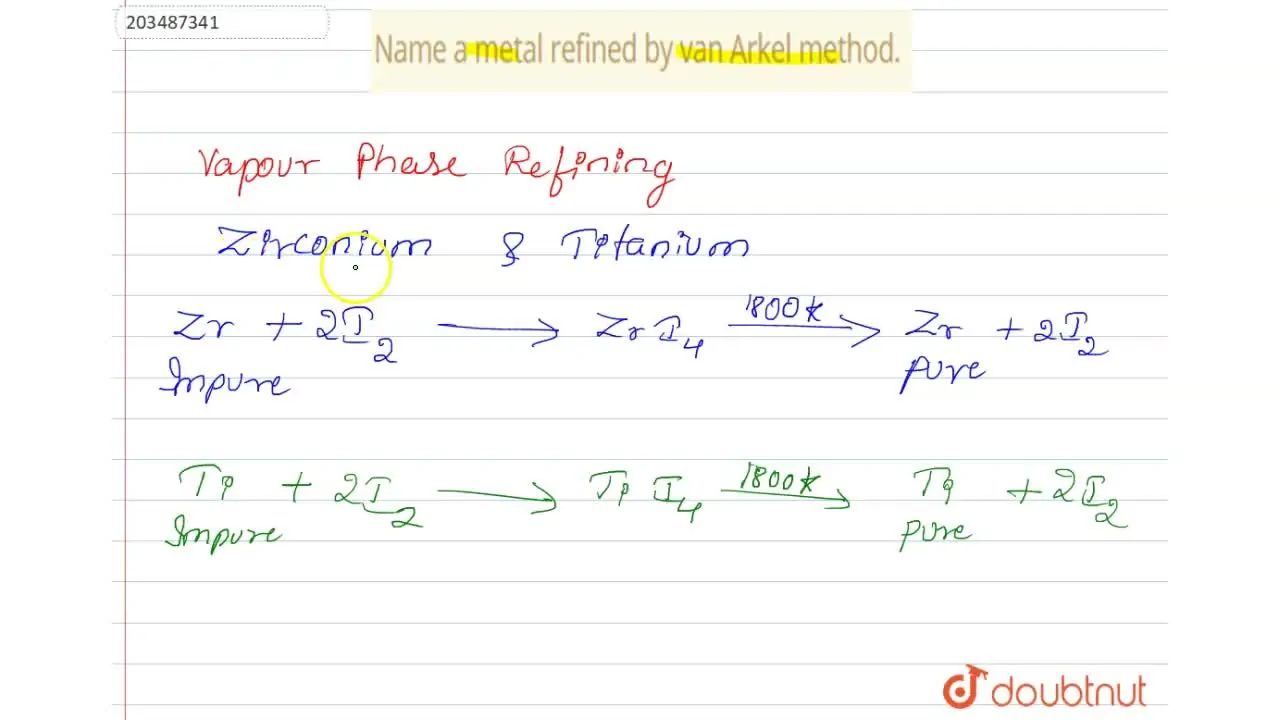 203487341
Name a metal refined by van Arkel method.
Vapour Phase Refining
Zirconium & Titanium
Zr + 2I₂ ⟶ ZrI₄ —1800K→ Zr + 2I₂
Impure pure
Ti + 2I₂ ⟶ TiI₄ —1800K→ Ti + 2I₂
Impure pure
doubtnut